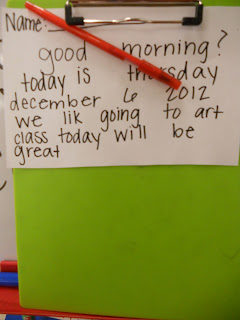 Name:
good morning?
today is thursday
december 6 2012
we lik going to art
class today will be
great